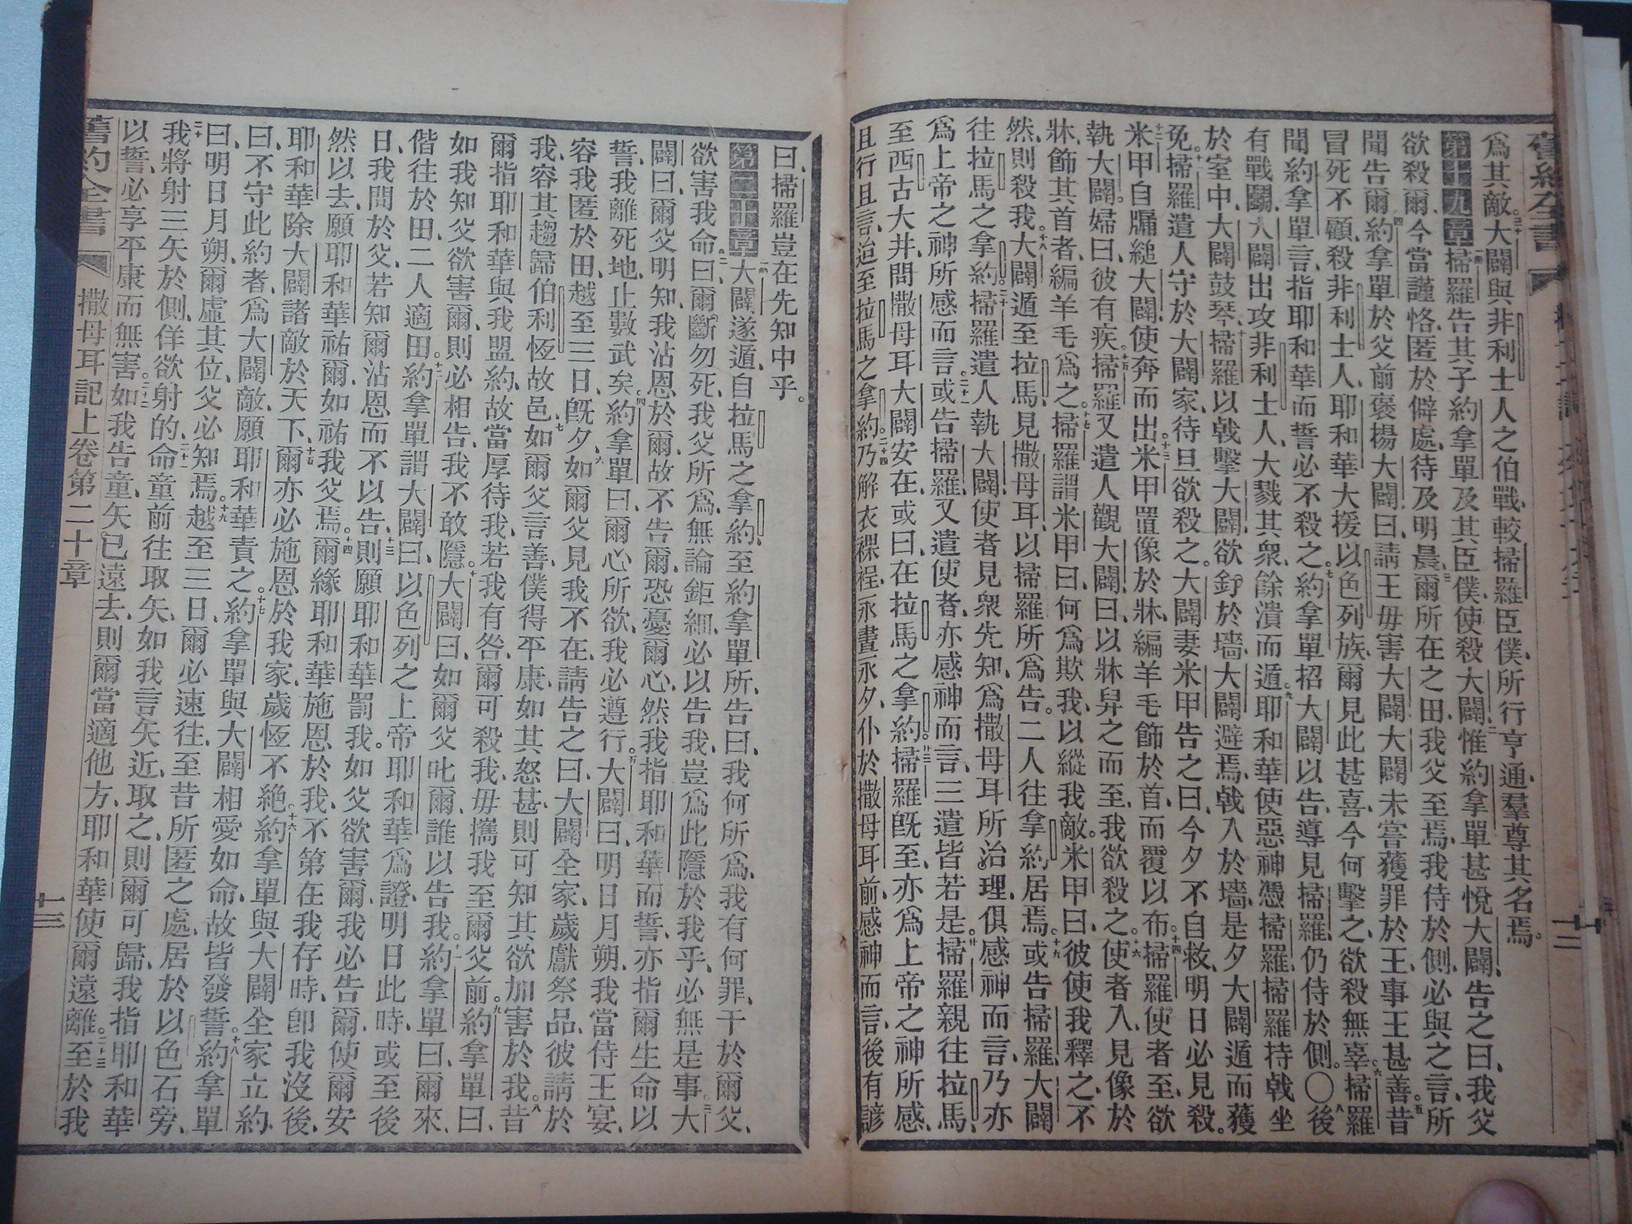 舊約全書
爲其敵、大闢與非利士人之伯戰、較掃羅臣僕、所行亨通、羣尊其名焉。
第十九章 掃羅告其子約拿單、及其臣僕、使殺大闢、惟約拿單甚悅大闢、告之曰、我父
欲殺爾、今當謹恪、匿於僻處、待及明晨、爾所在之田、我父至焉、我侍於側、必與之言、所
聞告爾、約拿單於父前褒揚大闢曰、請王毋害大闢、大闢未嘗獲罪於王、事王甚善、昔
冒死不顧、殺非利士人、耶和華大援以色列族、爾見此甚喜、今何擊之、欲殺無辜、掃羅
聞約拿單言、指耶和華而誓、必不殺之、約拿單招大闢以告、導見掃羅、仍侍於側。〇後
有戰鬭、大闢出攻非利士人、大戮其衆、餘潰而遁、耶和華使惡神憑掃羅、掃羅持戟坐
於室中、大闢鼓琴、掃羅以戟擊大闢、欲釘於墻、大闢避焉、戟入於墻、是夕大闢遁而獲
免、掃羅遣人守於大闢家、待旦欲殺之、大闢妻米甲告之曰、今夕不自救、明日必見殺。
米甲自牖縋大闢、使奔而出、米甲置像於牀、編羊毛飾於首、而覆以布、掃羅使者至、欲
執大闢、婦曰、彼有疾、掃羅又遣人觀大闢曰、以牀舁之而至、我欲殺之、使者入、見像於
牀、飾其首者、編羊毛爲之、掃羅謂米甲曰、何爲欺我、以縱我敵、米甲曰、彼使我釋之、不
然、則殺我、大闢遁至拉馬、見撒母耳、以掃羅所爲告。二人往拿約居焉、或告掃羅、大闢
往拉馬之拿約、掃羅遣人執大闢、使者見衆先知、爲撒母耳所治理、俱感神而言、乃亦
爲上帝之神所感而言、或告掃羅、又遣使者、亦感神而言、三遣皆若是、掃羅親往拉馬、
至西古大井、問撒母耳大闢安在、或曰、在拉馬之拿約、掃羅旣至、亦爲上帝之神所感、
且行且言、迨至拉馬之拿約、乃解衣裸裎、永晝永夕、仆於撒母耳前、感神而言、後有諺
曰、掃羅豈在先知中乎。
第二十章 大闢遂遁、自拉馬之拿約、至約拿單所、告曰、我何所爲、我有何罪、干於爾父、
欲害我命、曰、爾斷勿死、我父所爲、無論鉅細、必以告我、豈爲此隱於我乎、必無是事、大
闢曰、爾父明知、我沾恩於爾、故不告爾、恐憂爾心、然我指耶和華而誓、亦指爾生命以
誓、我離死地、止數武矣、約拿單曰、爾心所欲、我必遵行、大闢曰、明日月朔、我當侍王宴、
容我匿於田、越至三日、旣夕、如爾父見我不在、請告之曰、大闢全家、歲獻祭品、彼請於
我、容其趨歸伯利恆故邑、如爾父言善、僕得平康、如其怒甚、則可知其欲加害於我、昔
爾指耶和華、與我盟約、故當厚待我、若我有咎、爾可殺我、毋攜我至爾父前、約拿單曰、
如我知父欲害爾、則必相告、我不敢隱、大闢曰、如爾父叱爾、誰以告我、約拿單曰、爾來、
偕往於田、二人適田、約拿單謂大闢曰、以色列之上帝耶和華爲證、明日此時、或至後
日、我問於父、若知爾沾恩、而不以告、則願耶和華罰我、如父欲害爾、我必告爾、使爾安
然以去、願耶和華祐爾、如祐我父焉、爾緣耶和華施恩於我、不第在我存時、卽我沒後、
耶和華除大闢諸敵於天下、爾亦必施恩於我家、歲恆不絕、約拿單與大闢全家立約、
曰、不守此約者、爲大闢敵、願耶和華責之、約拿單與大闢相愛如命、故皆發誓、約拿單
曰、明日月朔、爾虛其位、父必知焉、越至三日、爾必速往、至昔所匿之處、居於以色石旁、
我將射三矢於側、佯欲射的、命童前往取矢、如我言矢近、取之、則爾可歸、我指耶和華
以誓、必享平康而無害、如我告童、矢已遠去、則爾當適他方、耶和華使爾遠離、至於我
舊約全書 撒母耳記上卷第二十章 十三